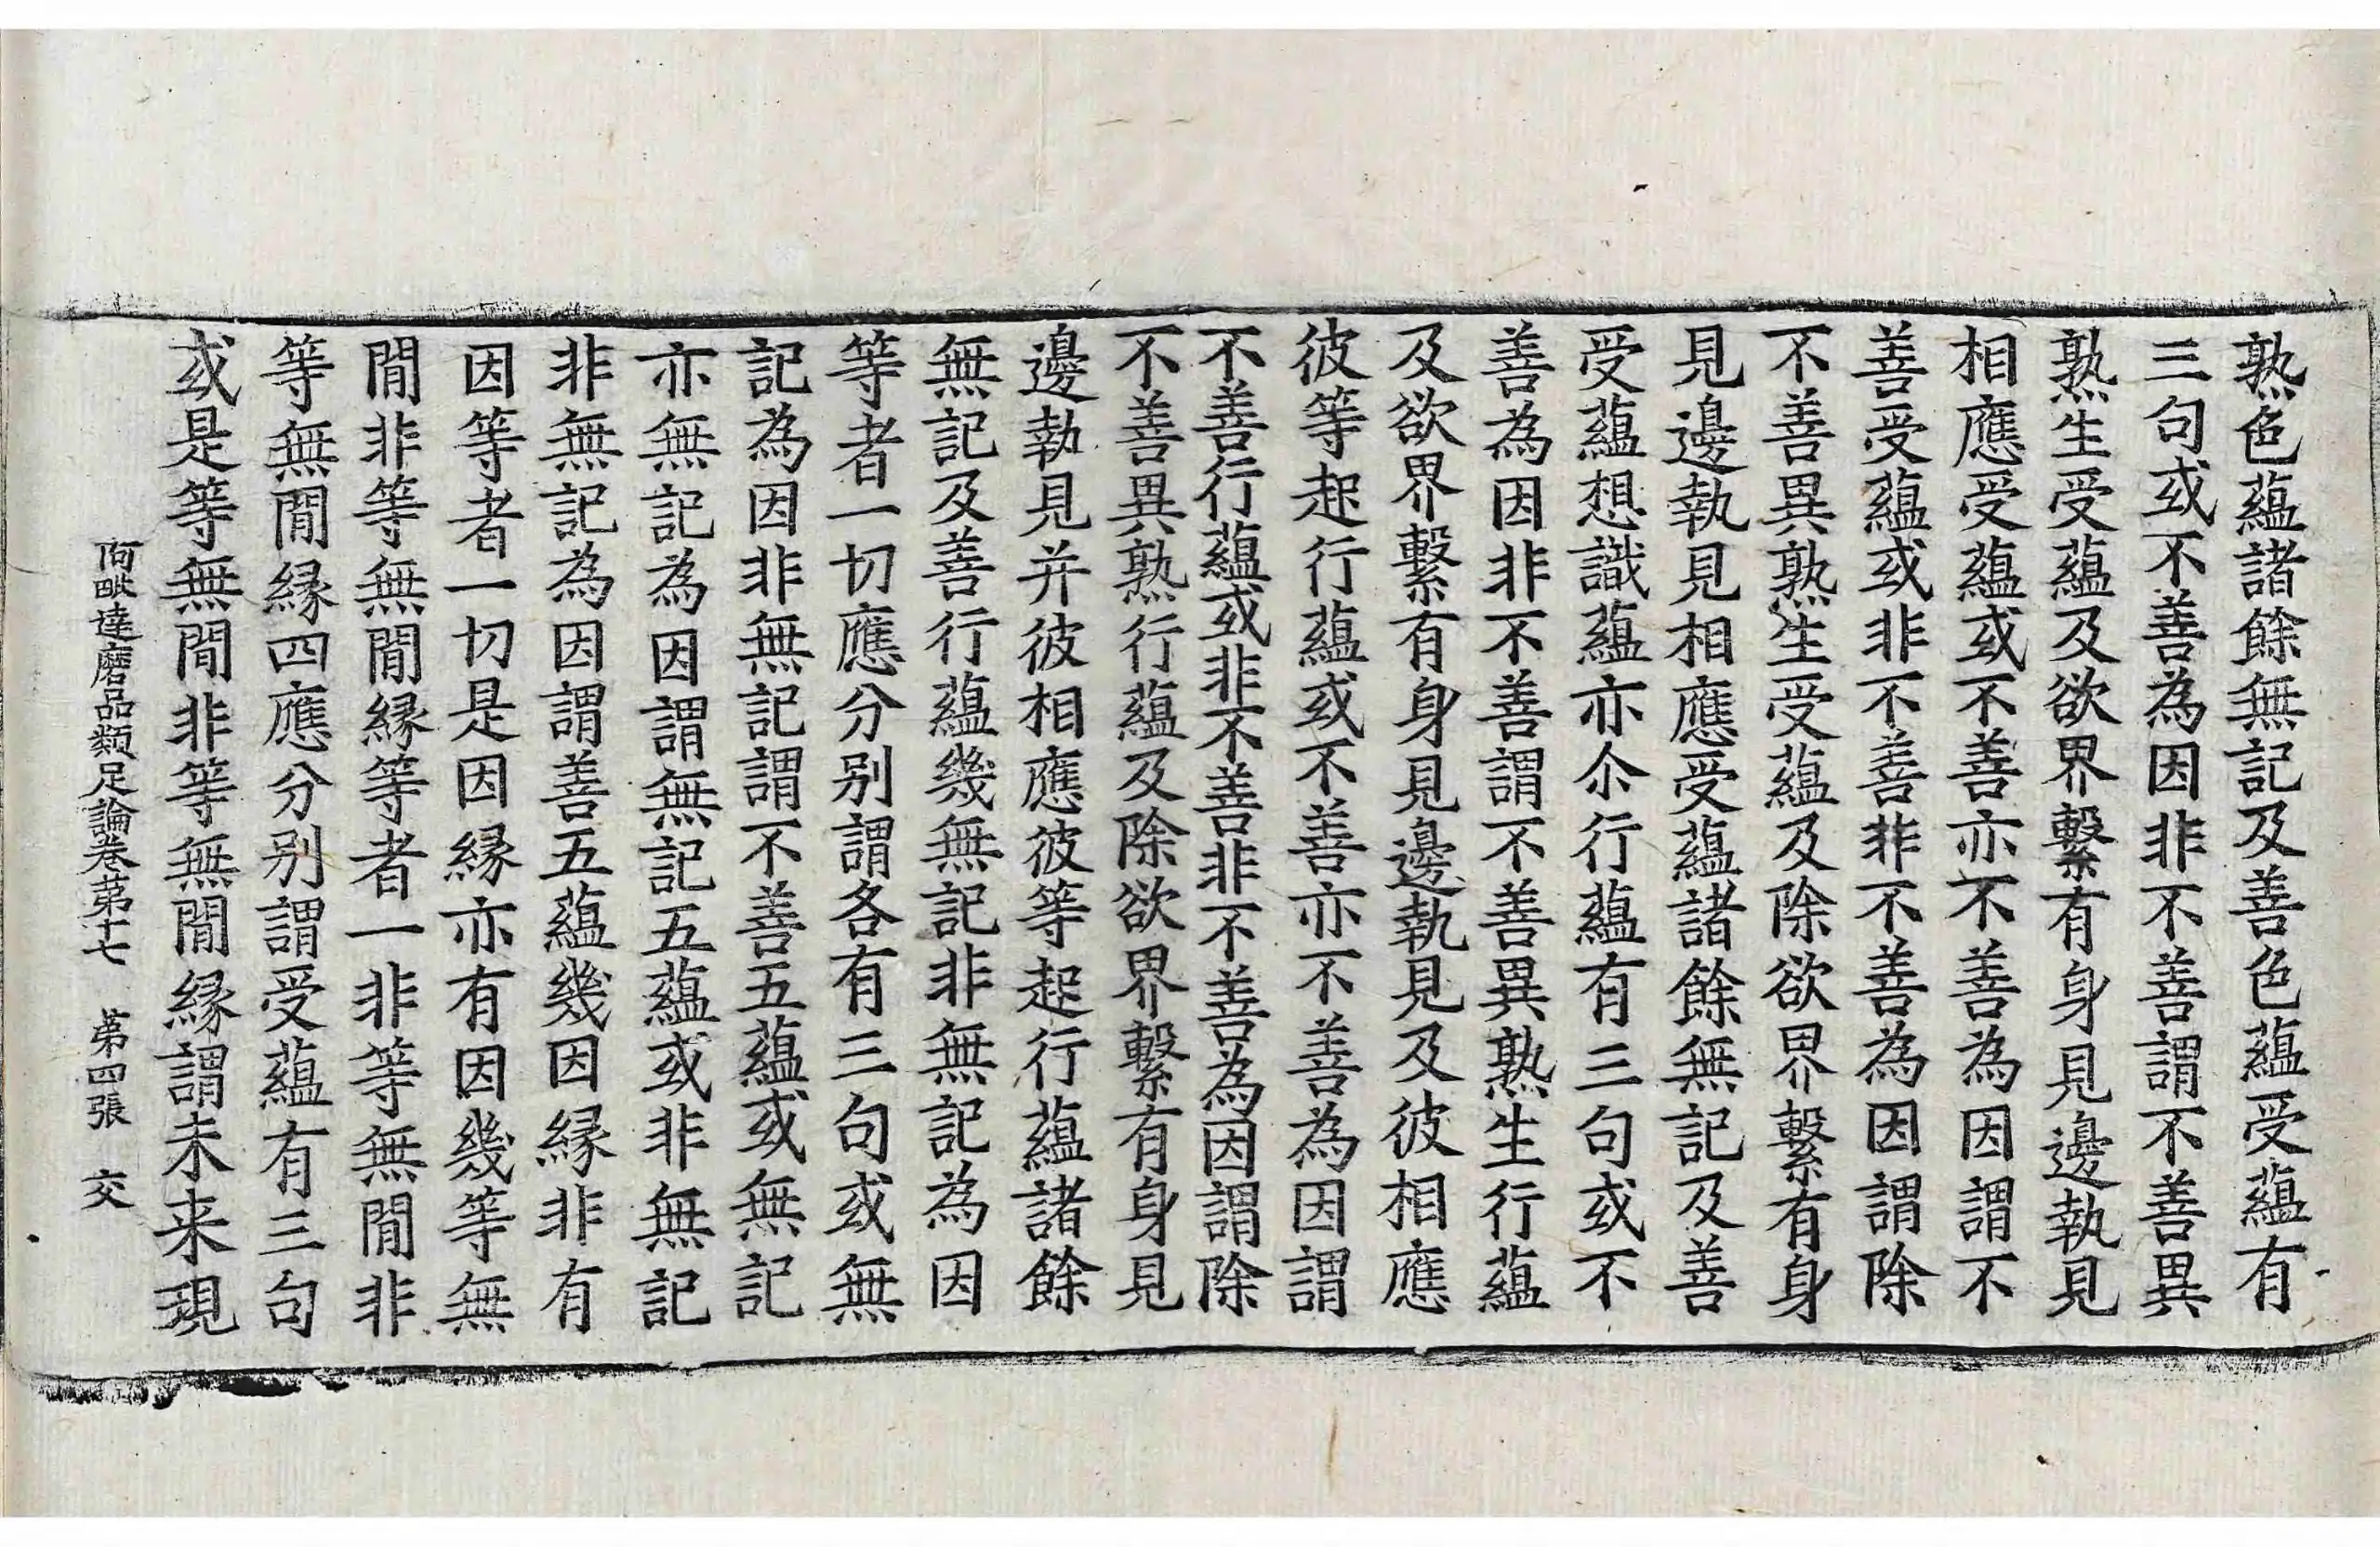 熟色蘊諸餘無記及善色蘊受蘊有
三句或不善為因非不善謂不善異
熟生受蘊及欲界繫有身見邊執見
相應受蘊或不善亦不善為因謂不
善受蘊或非不善非不善為因謂除
不善異熟生受蘊及除欲界繫有身
見邊執見相應受蘊諸餘無記及善
受蘊想識蘊亦尒行蘊有三句或不
善為因非不善謂不善異熟生行蘊
及欲界繫有身見邊執見及彼相應
彼等起行蘊或不善亦不善為因謂
不善行蘊或非不善非不善為因謂除
不善異熟行蘊及除欲界繫有身見
邊執見并彼相應彼等起行蘊諸餘
無記及善行蘊幾無記非無記為因
等者一切應分別謂各有三句或無
記為因非無記謂不善五蘊或無記
亦無記為因謂無記五蘊或非無記
非無記為因謂善五蘊幾因緣非有
因等者一切是因緣亦有因幾等無
間非等無間緣等者一非等無間非
等無間緣四應分別謂受蘊有三句
或是等無間非等無間緣謂未来現
阿毗達磨品類足論卷第十七 第四張 交